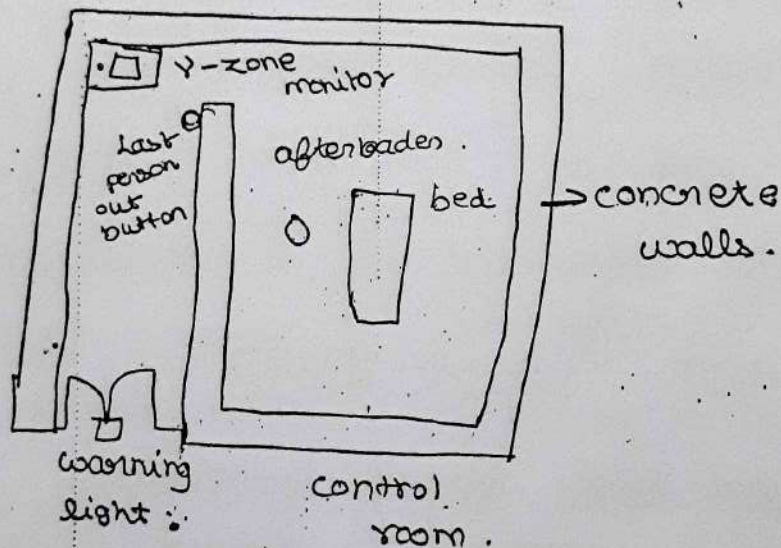 γ-zone
monitor
Last
person
out
button
afterloader.
bed
→ concrete
walls.
warning
light :
control
room.